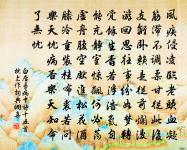 風疾侵凌臨老頭血凝
筋滯不調柔甘從此後
支離臥賴是從前爛漫
遊回思往事紛如夢轉
覺餘生杳若浮浩氣自
能充靜室驚飆何必蕩
虛舟腹空先進松花酒
膝冷重裝桂布裘若問
樂天憂病否樂天知命
了無憂
白居易病中詩十五首
枕上作